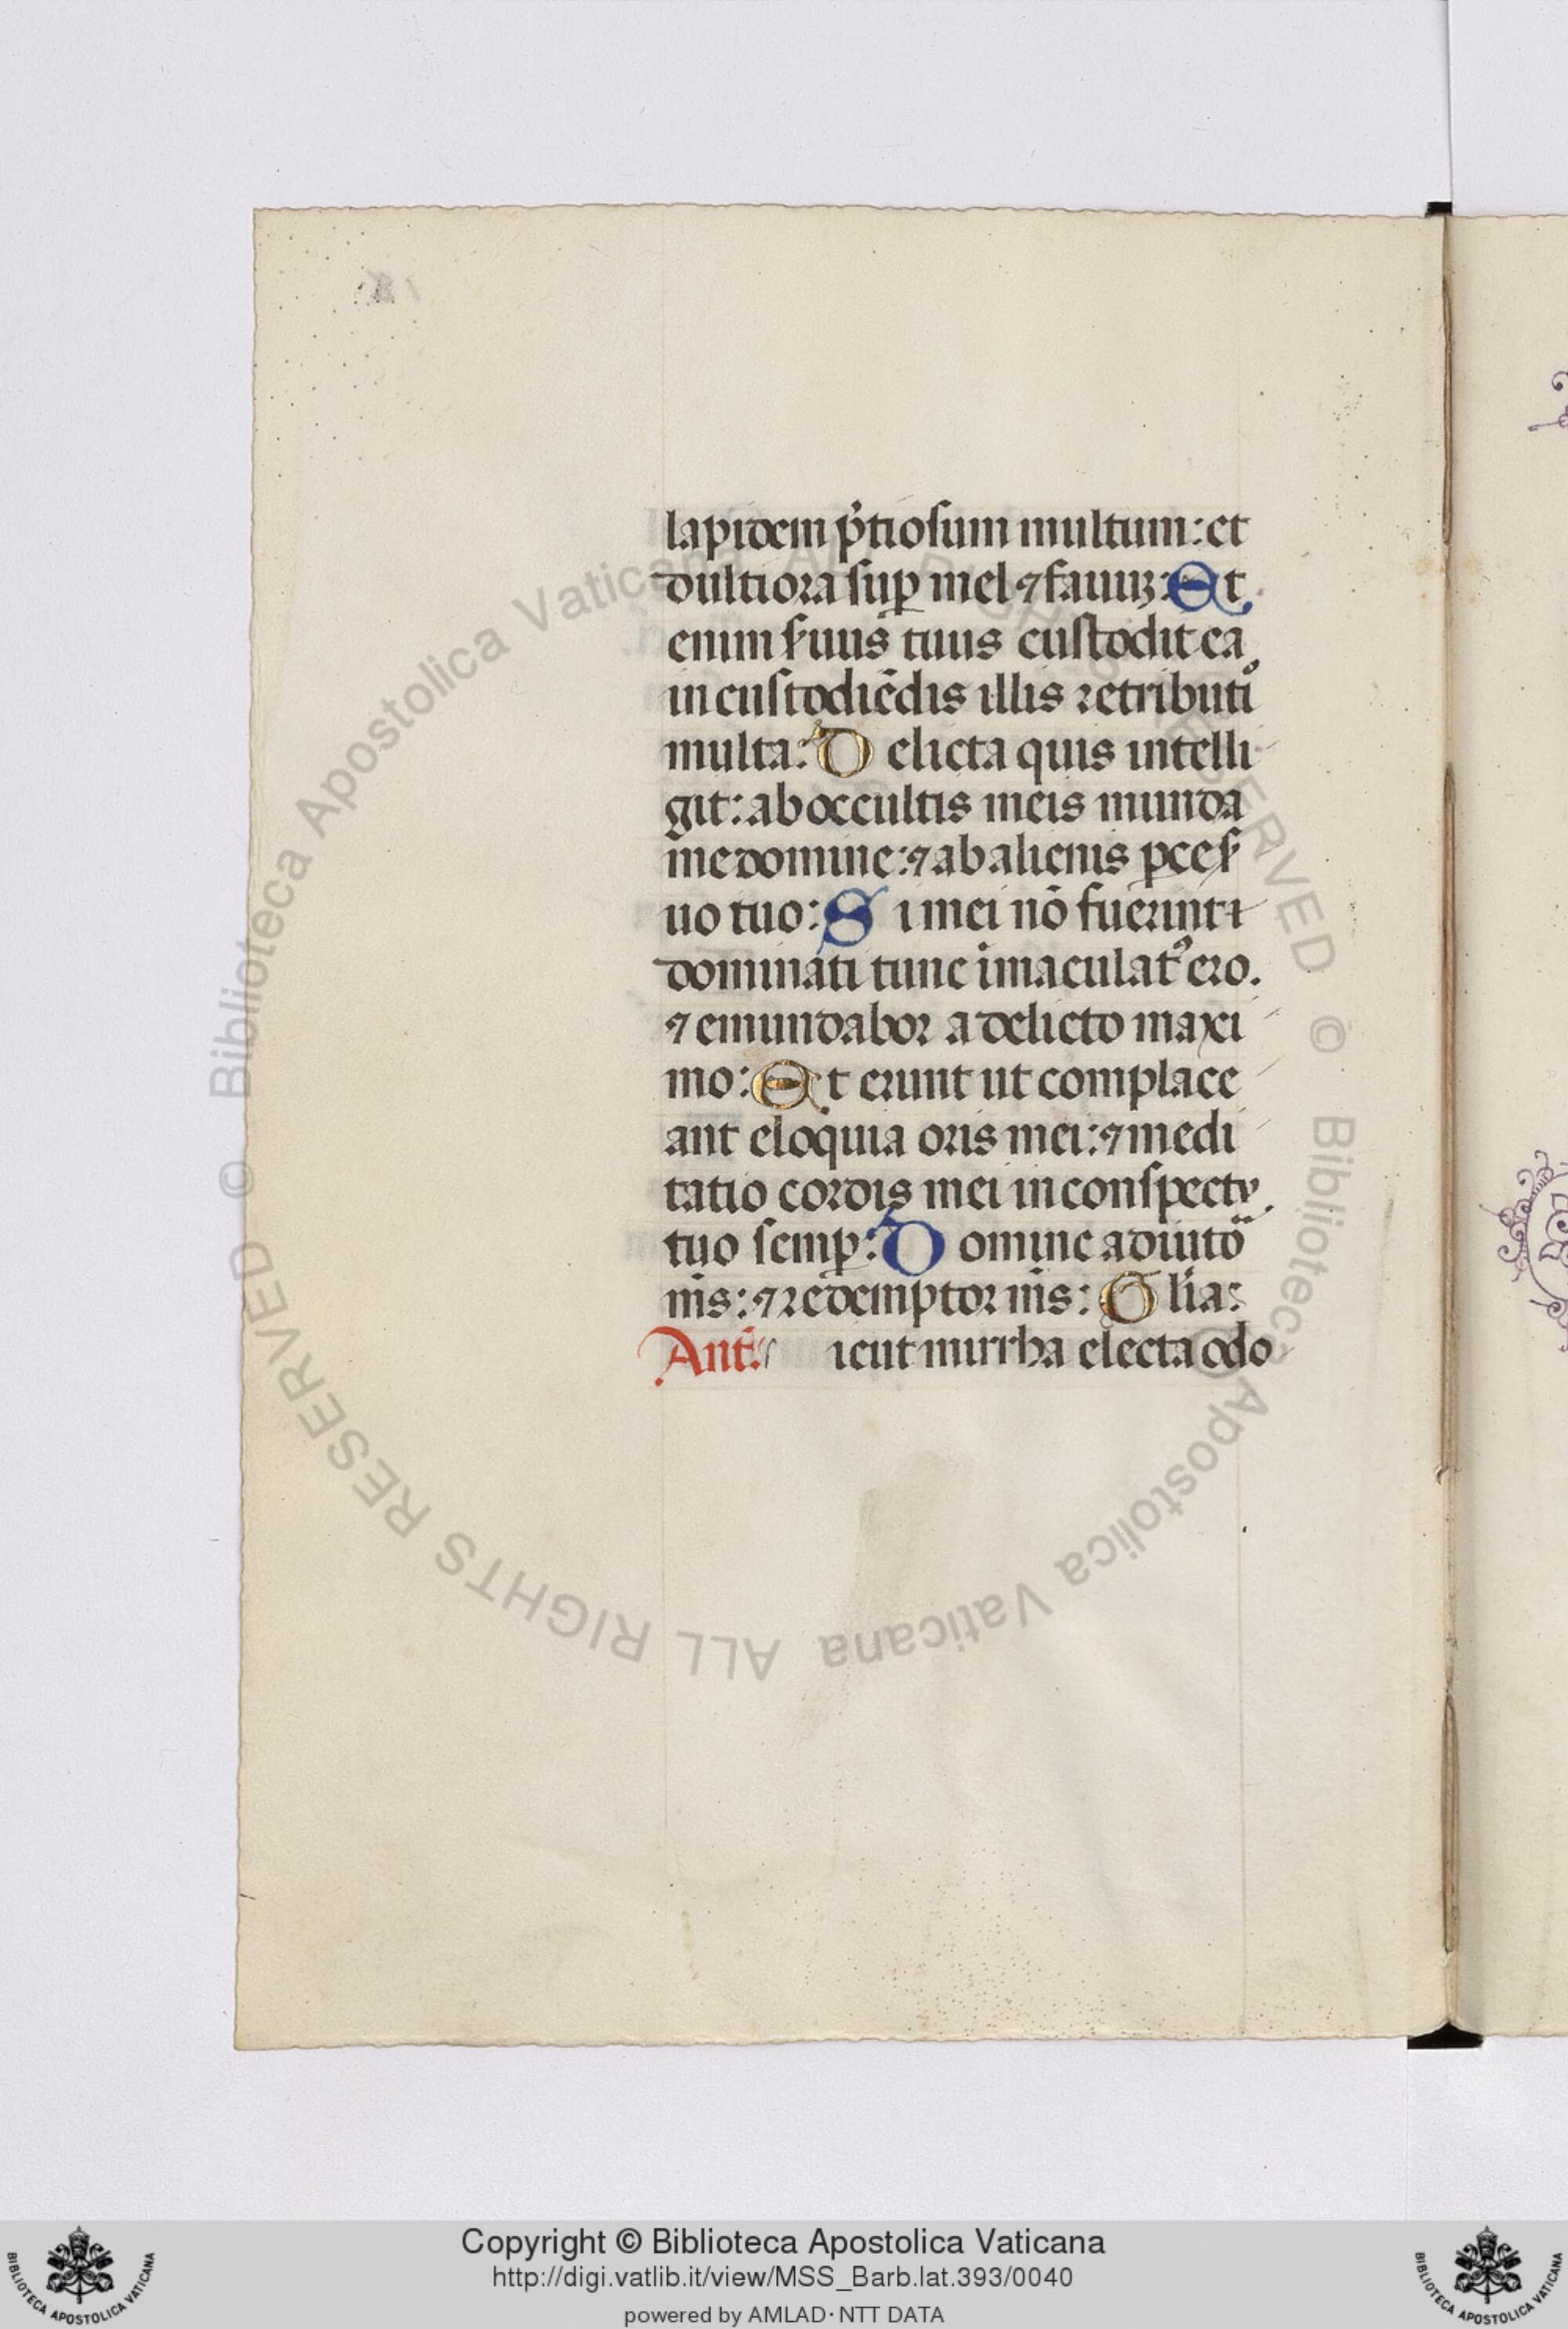 lapidem p̓tiosum multum: et
dultiora suꝑ mel ⁊ fauuꝫ: Et
enim s̓uus tuus custodit ea
in custodiẽdis illis retributiͦ
multa: D elicta quis intelli
git: ab occultis meis munda
me domine: ⁊ ab alienis ꝑce s̓
uo tuo: S i mei nõ fuerint
dominati tunc ĩmaculatꝰ ero.
⁊ emundabor a delicto maxi
mo: Et erunt ut complace
ant eloquia oris mei: ⁊ medi
tatio cordis mei in conspectu
tuo semꝑ: D omine adiuto
m̃s: ⁊ redemptor m̃s: G lĩa:
Ant̃. icut mirrha electa odo
Copyright © Biblioteca Apostolica Vaticana
http://digi.vatlib.it/view/MSS_Barb.lat.393/0040
powered by AMLAD·NTT DATA
BIBLIOTECA APOSTOLICA VATICANA
BIBLIOTECA APOSTOLICA VATICANA
© Biblioteca Apostolica Vaticana ALL RIGHTS RESERVED © Biblioteca Apostolica Vaticana ALL RIGHTS RESERVED